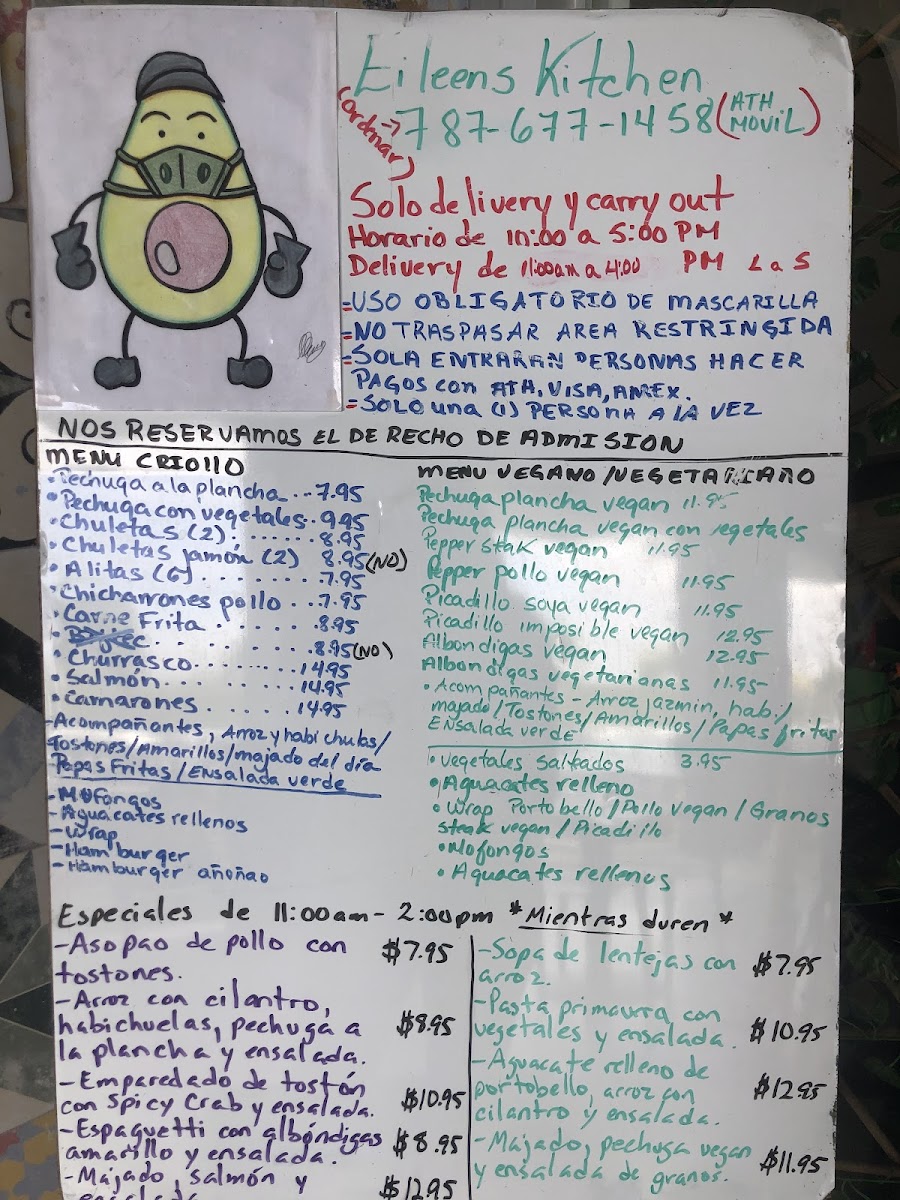 Eileens Kitchen
(ordenar) → 787-677-1458 (ATH MOVIL)
Solo delivery y carry out
Horario de 10:00 a 5:00 PM
Delivery de 11:00am a 4:00 PM L a S
-USO OBLIGATORIO DE MASCARILLA
-NO TRASPASAR AREA RESTRINGIDA
-SOLA ENTRARAN PERSONAS HACER
PAGOS con ATH, VISA, AMEX.
-SOLO una (1) PERSONA A LA VEZ
NOS RESERVAMOS EL DERECHO DE ADMISION
MENU CRIOLLO
•Pechuga a la plancha...7.95
•Pechuga con vegetales..9.95
•Chuletas (2).......8.95
•Chuletas jamón (2) 8.95 (NO)
•Alitas (6)........7.95
•Chicharrones pollo...7.95
•Carne Frita.......8.95
........8.95 (NO)
•Churrasco.......14.95
•Salmón........14.95
•Camarones.......14.95
-Acompañantes, Arroz y habichulas/
Tostones/Amarillos/majado del día
Papas Fritas/Ensalada verde
-Mofongos
-Aguacates rellenos
-Wrap
-Hamburger
-Hamburger añoñao
MENU VEGANO/VEGETARIANO
Pechuga plancha vegan 11.95
Pechuga plancha vegan con vegetales
Pepper stak vegan 11.95
Pepper pollo vegan 11.95
Picadillo soya vegan 11.95
Picadillo imposible vegan 12.95
Albondigas vegan 12.95
Albondigas vegetarianas 11.95
•Acompañantes - Arroz jazmin, habi/
majado/Tostones/Amarillos/Papas fritas
Ensalada verde
•vegetales salteados 3.95
•Aguacates relleno
•Wrap Portobello/Pollo vegan/Granos
steak vegan/Picadillo
•Mofongos
•Aguacates rellenos
Especiales de 11:00am-2:00pm *Mientras duren*
-Asopao de pollo con $7.95
tostones.
-Arroz con cilantro,
habichuelas, pechuga a $8.95
la plancha y ensalada.
-Emparedado de tostón
con Spicy Crab y ensalada. $10.95
-Espaguetti con albóndigas
amarillo y ensalada. $8.95
-Majado, salmón y $12.95
ensalada
-Sopa de lentejas con $7.95
arroz.
-Pasta primavera con
vegetales y ensalada. $10.95
-Aguacate relleno de
portobello, arroz con $12.95
cilantro y ensalada.
-Majado, pechuga vegan
y ensalada de granos. $11.95